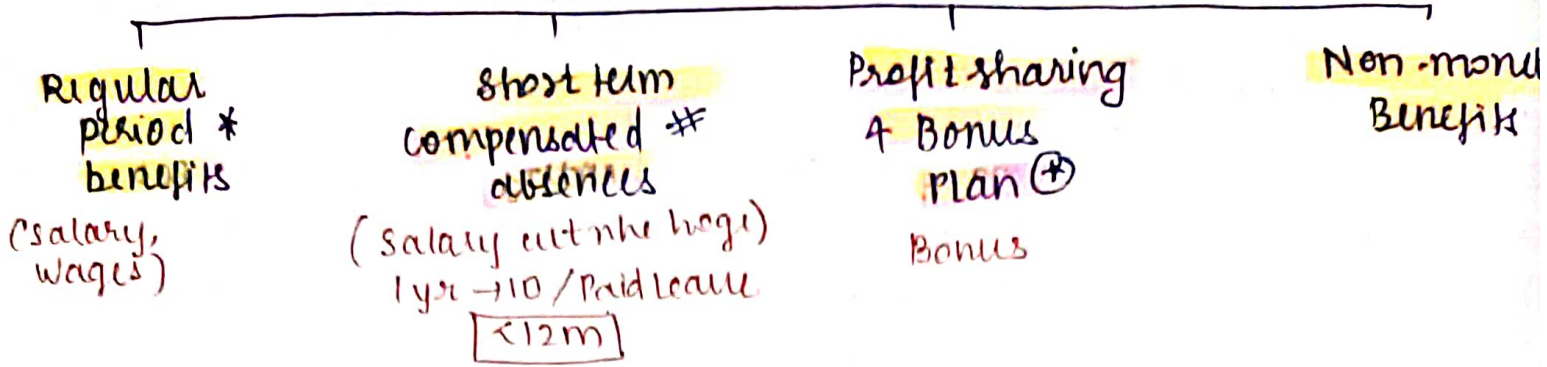 Regular
period *
benefits
(salary,
wages)
Short term
compensated #
absences
(salary cut nhe hogi)
1 yr → 10 / Paid Leave
<12m
Profit sharing
& Bonus
Plan *
Bonus
Non-mone
Benefits